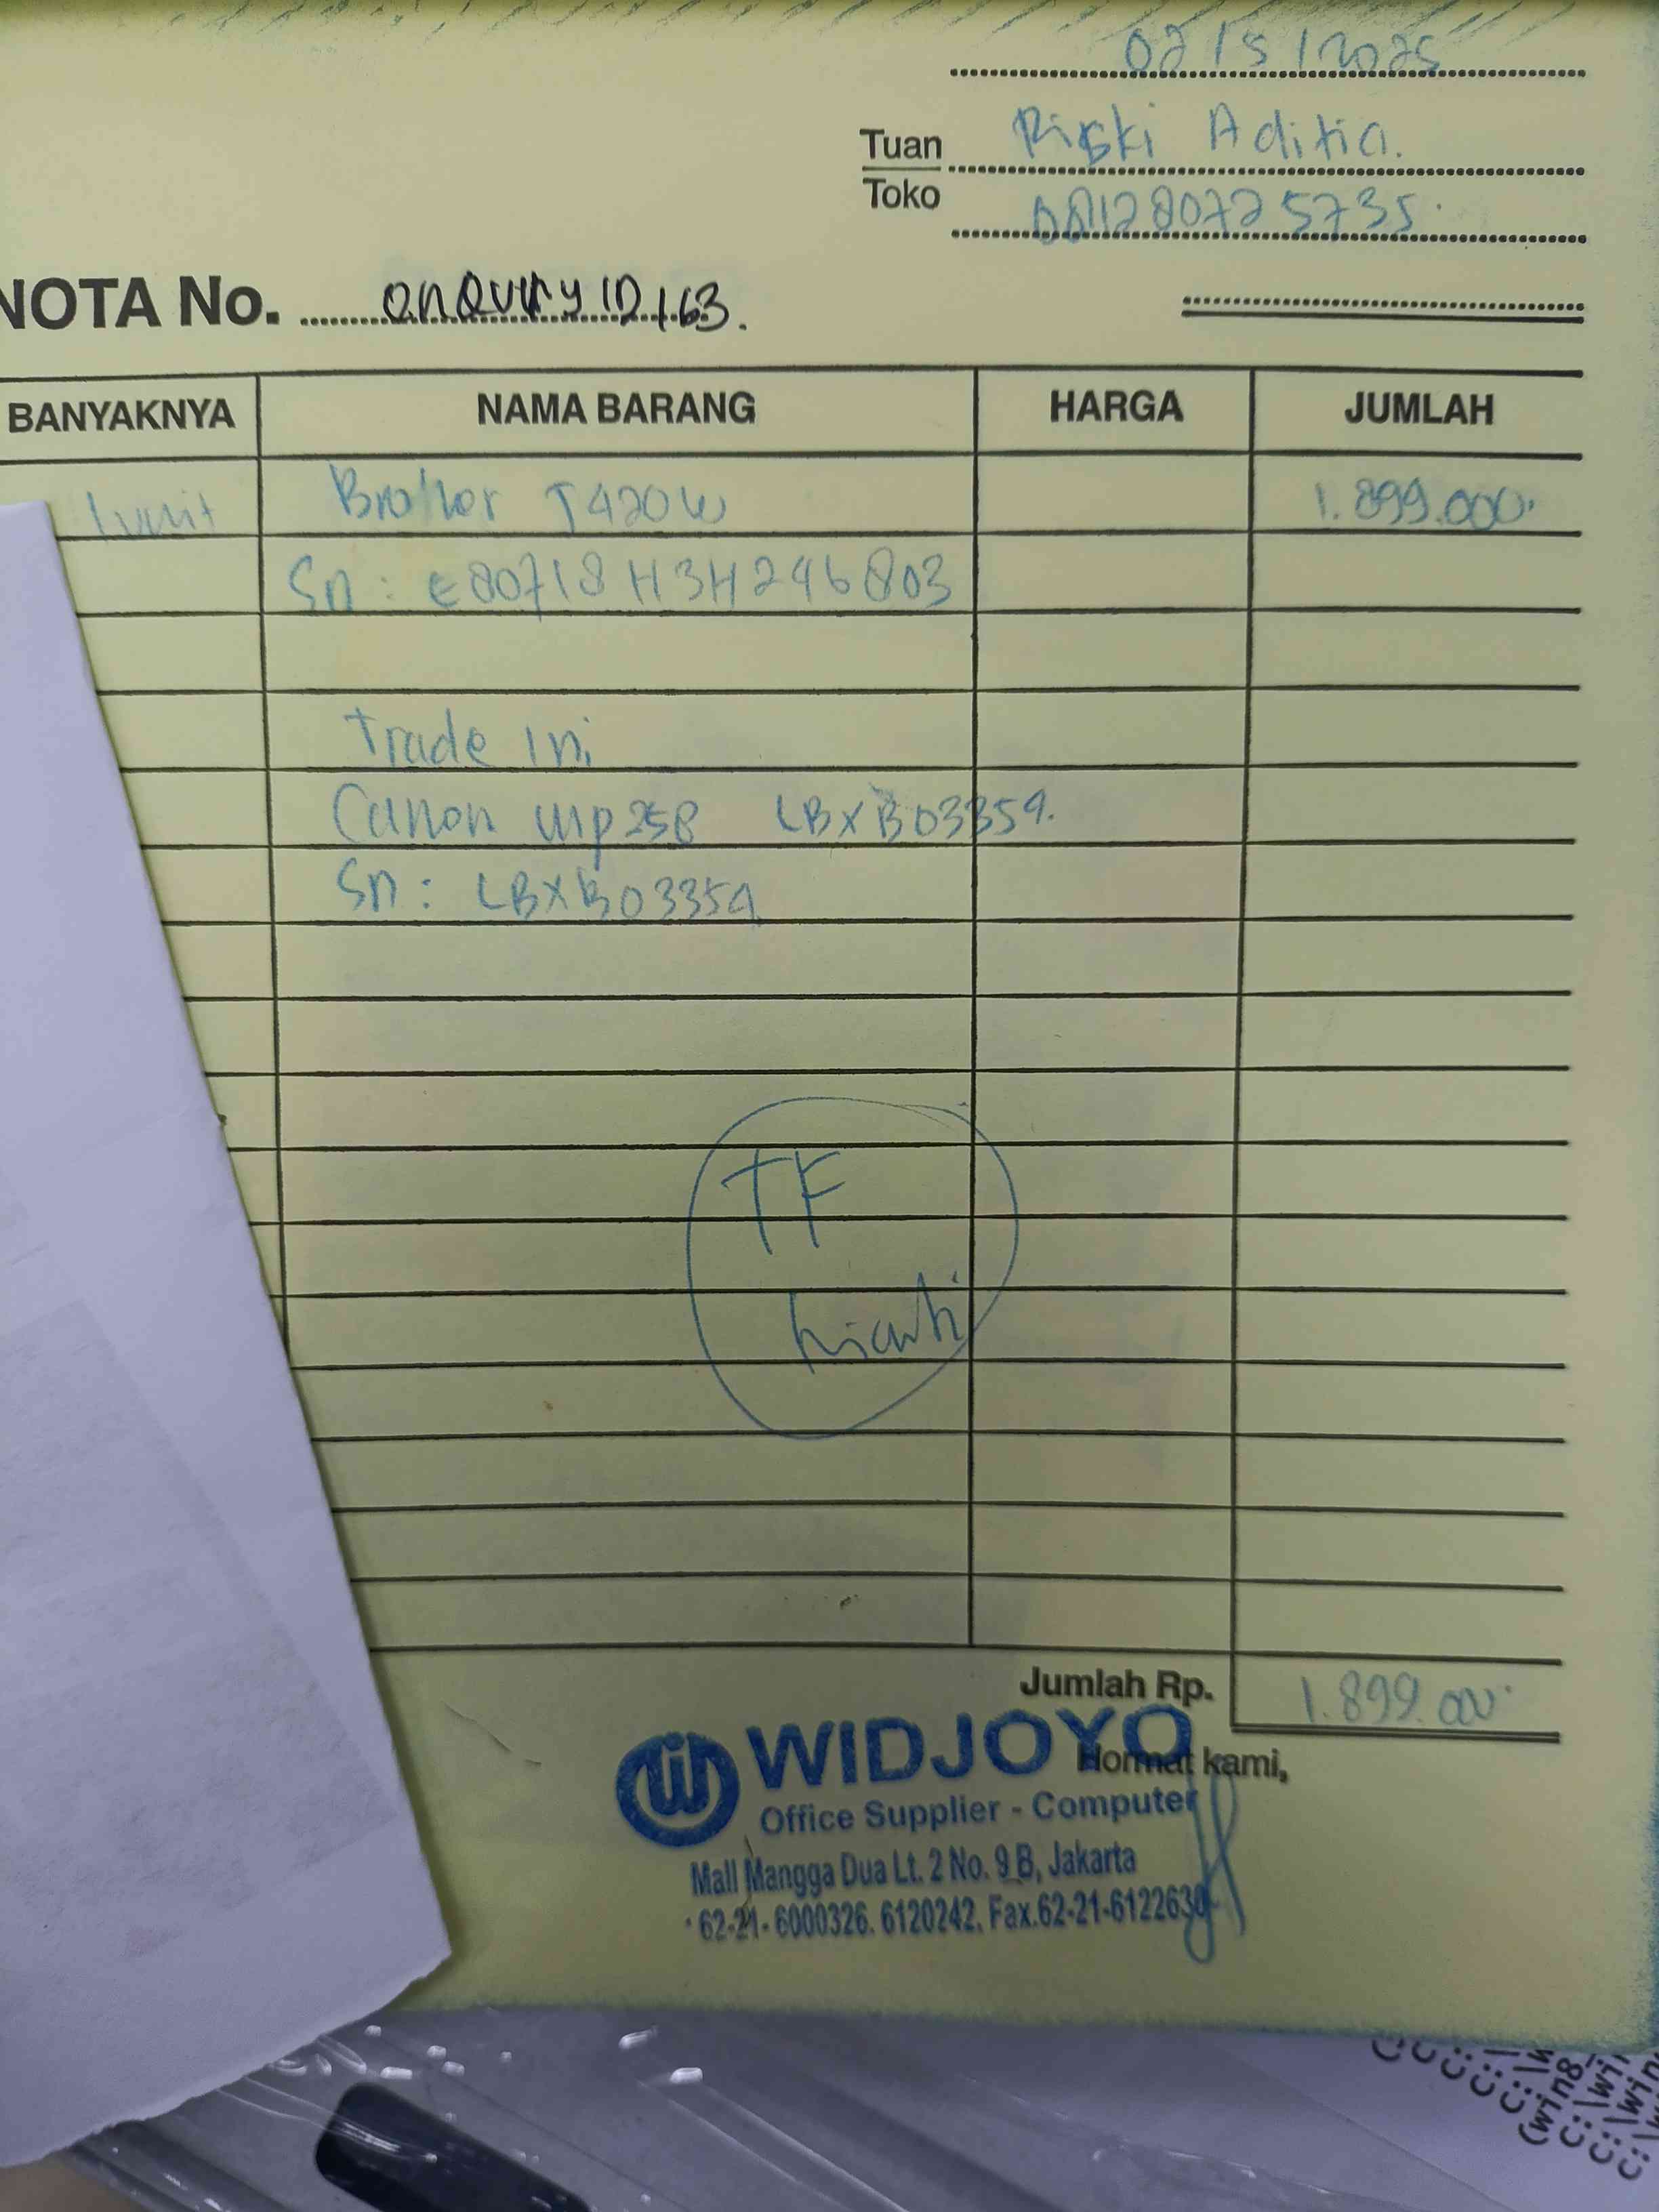 02/5/2025
Tuan Riski Aditia.
Toko 081280725735.
NOTA No. enquiry ID 163.
BANYAKNYA NAMA BARANG HARGA JUMLAH
1 unit Brother T420W 1.899.000.
Sn: E80718H3H246803
Trade In
Canon mp258 LBXB03359.
Sn: LBXB03359
TF
Jumlah Rp. 1.899.000
WIDJOYO
Hormat kami,
Office Supplier - Computer
Mall Mangga Dua Lt. 2 No. 9 B, Jakarta
62-21-6000326. 6120242, Fax.62-21-6122630